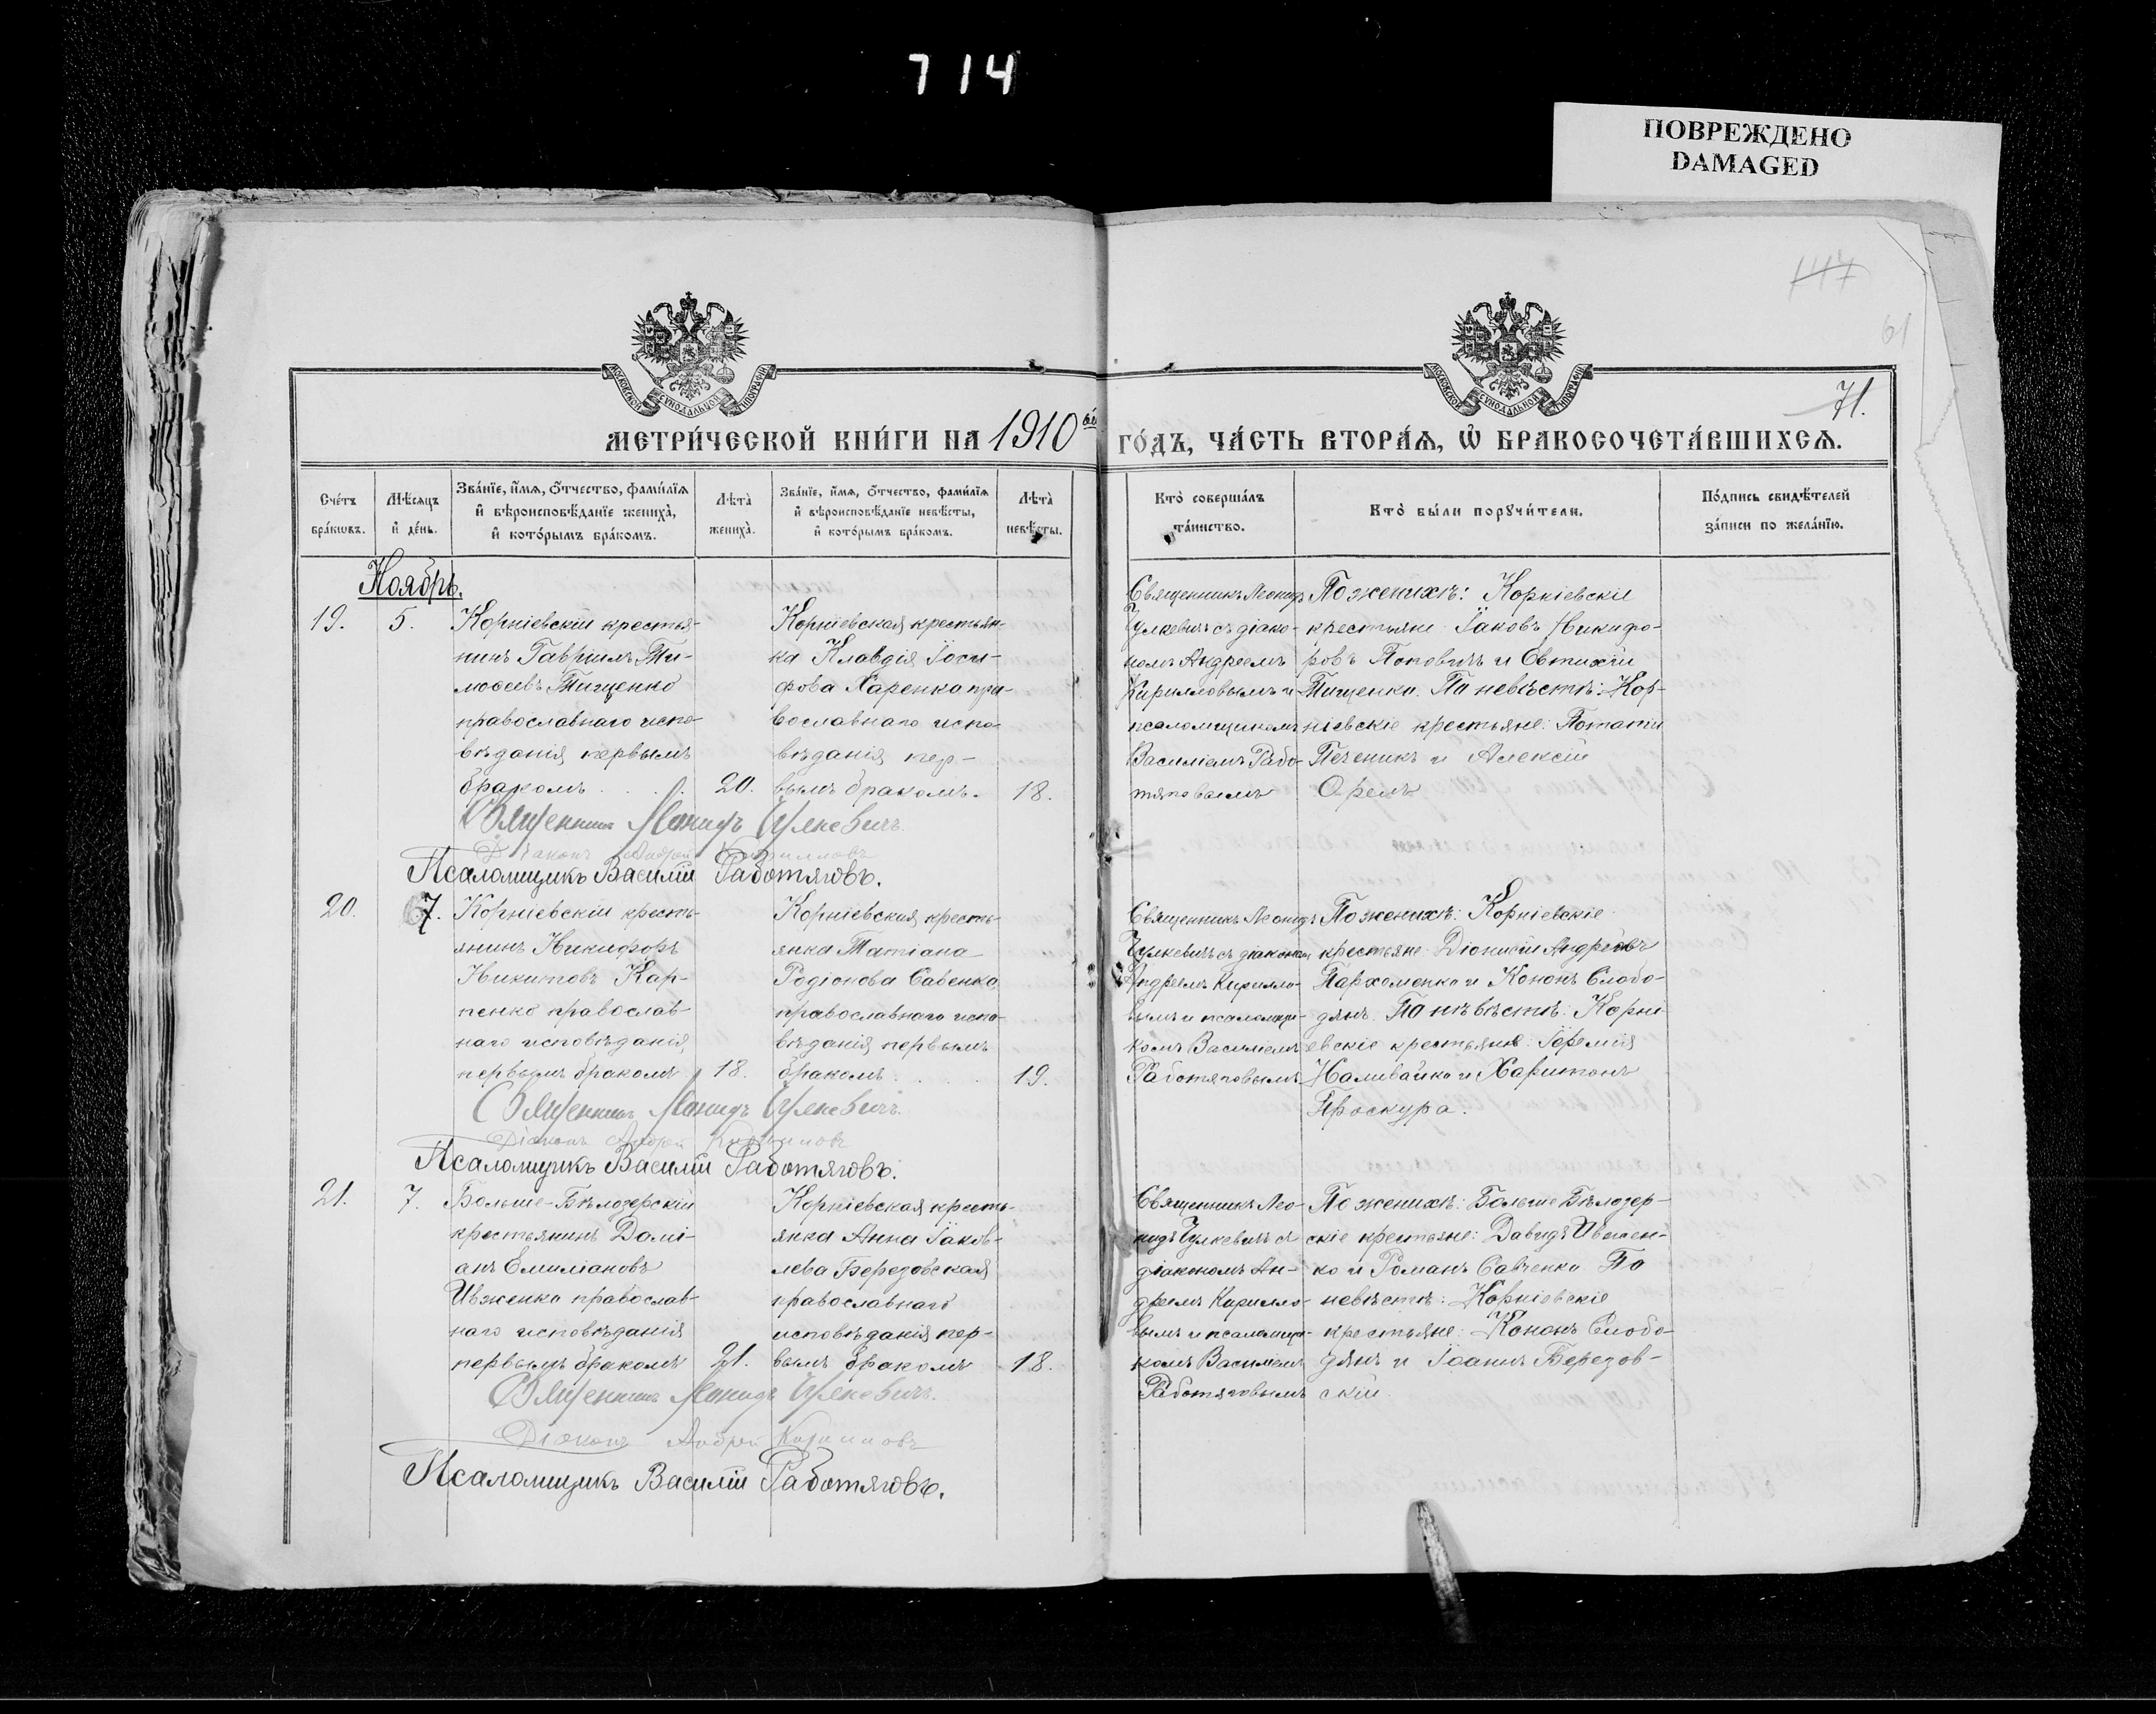 714
ПОВРЕЖДЕНО
DAMAGED
147
61
71.
МОСКОВСКОЙ СѴНОДАЛЬНОЙ ТИПОГРАФІИ
МОСКОВСКОЙ СѴНОДАЛЬНОЙ ТИПОГРАФІИ
МЕТРИ́ЧЕСКОЙ КНИ́ГИ НА 1910ый ГО́ДЪ, ЧА́СТЬ ВТОРА́Ѧ, Ѽ БРАКОСОЧЕТА́ВШИХСѦ.
Сче́тъ
бра́кѡвъ.
Мѣ́сяцъ
и҆ де́нь.
Зва́нїе, и҆́мѧ, ѻ҆́тчество, фами́лїѧ
и҆ вѣроисповѣ́данїе жениха̀,
и҆ кото́рымъ бра́комъ.
Лѣта̀
жениха̀.
Зва́нїе, и҆́мѧ, ѻ҆́тчество, фами́лїѧ
и҆ вѣроисповѣ́данїе невѣ́сты,
и҆ кото́рымъ бра́комъ.
Лѣта̀
невѣ́сты.
Кто̀ соверша́лъ
та́инство.
Кто̀ бы́ли порꙋчи́тели.
По́дпись свидѣ́телей
за́писи по жела́нїю.
Ноябрь.
19.
5.
Корніевскій крестья-
нинъ Гавріилъ Ти-
моѳеевъ Тищенко
православнаго испо-
вѣданія первымъ
бракомъ . . . .
20.
Корніевская крестьян-
ка Клавдія Іоси-
фова Харенко пра-
вославнаго испо-
вѣданія пер-
вымъ бракомъ.
18.
Священникъ Леонидъ
Чулкевичъ съ діако-
номъ Андреемъ
Кирилловымъ и
псаломщикомъ
Василіемъ Рабо-
тяговымъ
По женихѣ: Корніевскіе
крестьяне Іаковъ Никифо-
ровъ Поповичъ и Евтихій
Тищенко. По невѣстѣ: Кор-
ніевскіе крестьяне: Потапій
Печеникъ и Алексій
Орелъ
Священникъ Леонидъ Чулкевичъ.
Діаконъ Андрей Кирилловъ
Псаломщикъ Василій Работяговъ.
20.
7.
Корніевскій кресть-
янинъ Никифоръ
Никитовъ Кар-
пенко православ-
наго исповѣданія
первымъ бракомъ
18.
Корніевская кресть-
янка Татіана
Родіонова Савенко
православнаго испо-
вѣданія первымъ
бракомъ . . . .
19.
Священникъ Леонидъ
Чулкевичъ съ діакономъ
Андреемъ Кирилло-
вымъ и псаломщи-
комъ Василіемъ
Работяговымъ
По женихѣ: Корніевскіе
крестьяне Діонисій Андреевъ
Пархоменко и Кононъ Слобо-
дянъ. По нѣвѣстѣ: Корні-
евскіе крестьяне: Іеремія
Наливайко и Харитонъ
Проскура.
Священникъ Леонидъ Чулкевичъ.
Діаконъ Андрей Кирилловъ
Псаломщикъ Василій Работяговъ.
21.
7.
Больше-Бѣлозерскій
крестьянинъ Домі-
анъ Емиліановъ
Ивженко православ-
наго исповѣданія
первымъ бракомъ
21.
Корніевская кресть-
янка Анна Іаков-
лева Березовская
православнаго
исповѣданія пер-
вымъ бракомъ
18.
Священникъ Лео-
нидъ Чулкевичъ съ
діакономъ Ан-
дреемъ Кирилло-
вымъ и псаломщи-
комъ Василіемъ
Работяговымъ
По женихѣ: Больше Бѣлозер-
скіе крестьяне: Давидъ Ивжен-
ко и Романъ Савченко. По
невѣстѣ: Корніевскіе
крестьяне: Кононъ Слобо-
дянъ и Іоаннъ Березов-
скій.
Священникъ Леонидъ Чулкевичъ.
Діаконъ Андрей Кирилловъ
Псаломщикъ Василій Работяговъ.